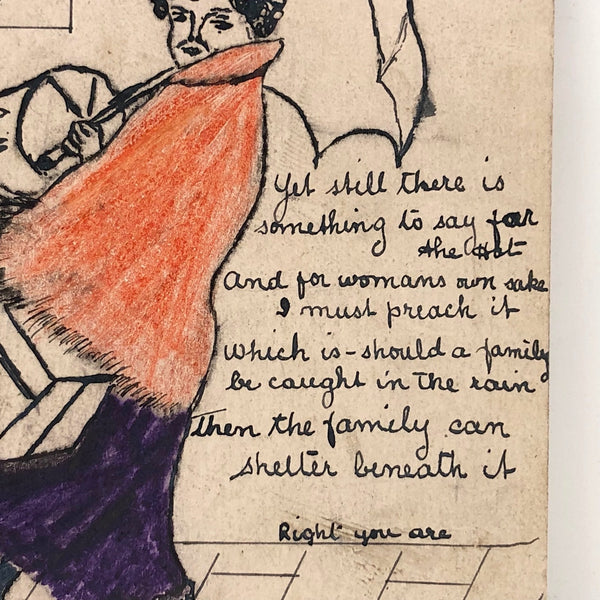 Yet still there is
something to say for
the Hat
And for womans own sake
I must preach it
Which is - should a family
be caught in the rain
Then the family can
shelter beneath it
Right you are